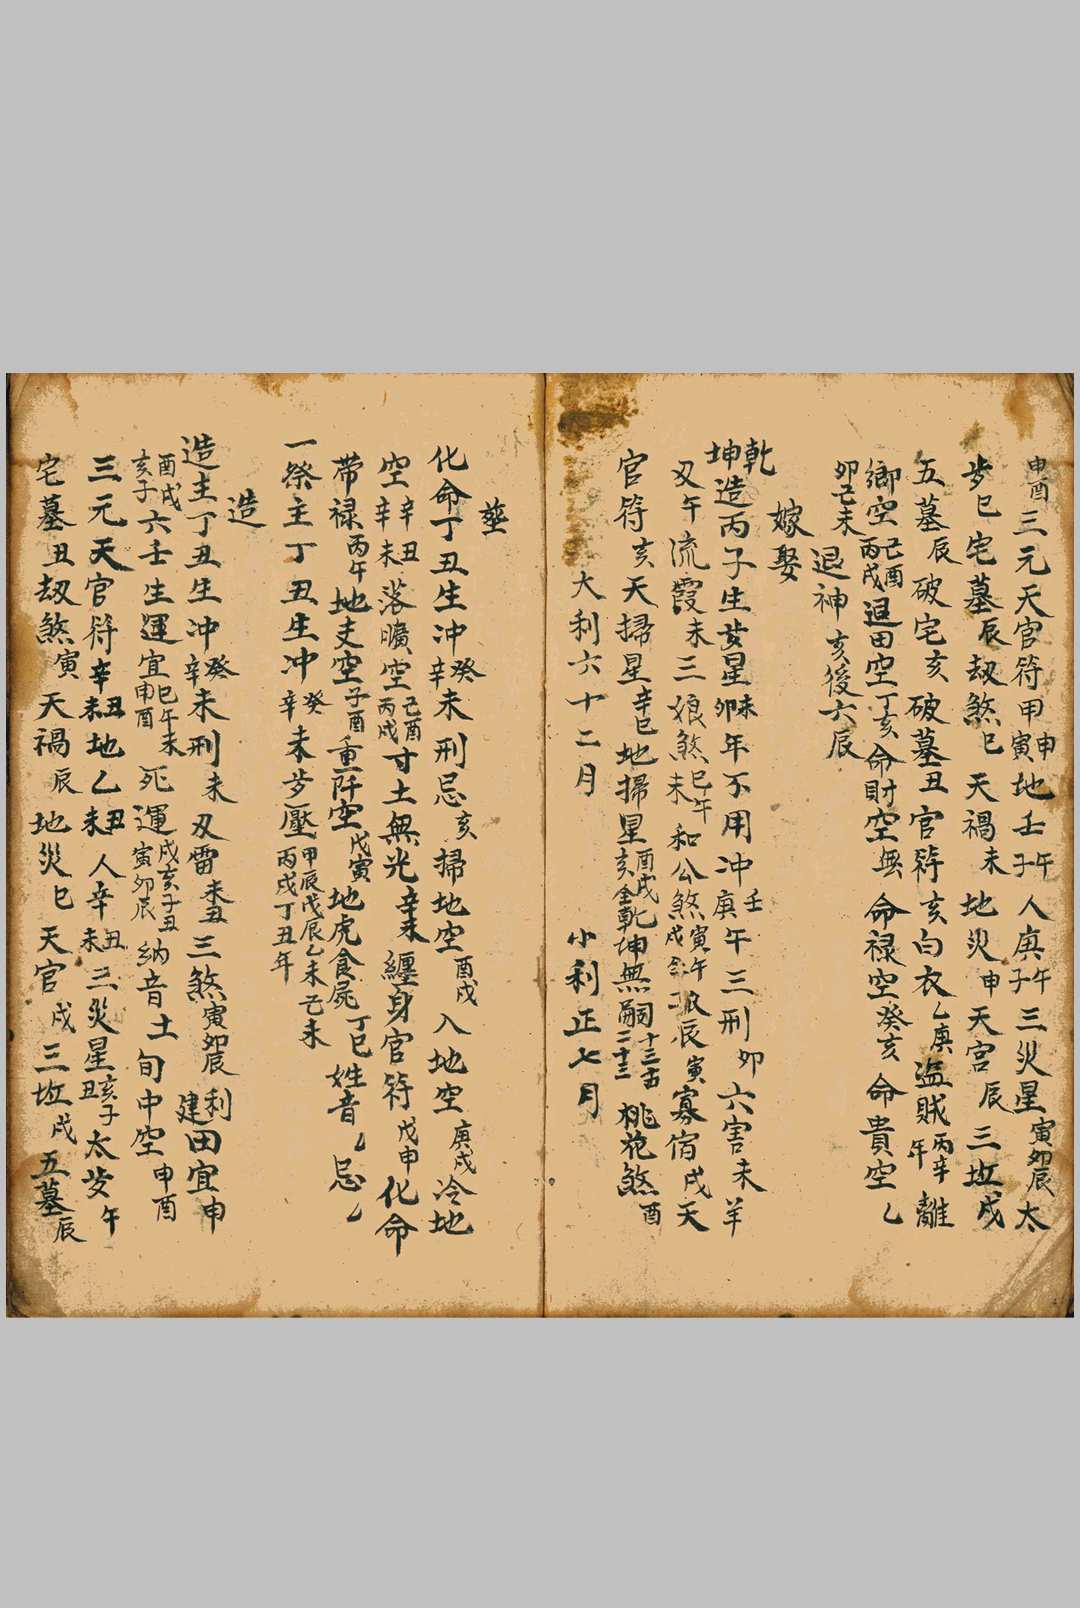 申酉三元天官符甲申寅地壬午子人庚午子三災星寅卯辰太
歩巳宅墓辰刼煞巳天禍未地災申天宮辰三坵戍
五墓辰破宅亥破墓丑官符亥白衣乙庚盗賊丙辛午離
郷空己酉丙戌退田空丁亥命財空無命禄空癸亥命貴空乙
卯己未退神亥後六辰
嫁娶
乾坤造丙子生女星未卯年不用冲壬庚午三刑卯六害未羊
刃午流霞未三娘煞巳午未和公煞寅午戌辰寅寡宿戌天
官符亥天掃星辛巳地掃星酉戌亥乾坤無嗣桃花煞酉
大利六十二月 小利正七月
塟
化命丁丑生冲癸辛未刑忌亥掃地空酉戌入地空庚戌冷地
空辛丑辛未落曠空己酉丙戌寸土無光辛未纒身官符戊申化命
帶禄丙午地支空子酉重阡空戊寅地虎食屍丁巳姓音乀忌乀
一祭主丁丑生冲癸辛未歩壓甲辰戊辰乙未己未丙戌丁丑年
造
造主丁丑生冲癸辛未刑未刃雷未丑三煞寅卯辰利建田宜申
酉戌亥子六壬生運宜巳午未申酉死運戌亥子丑寅卯辰納音土旬中空申酉
三元天官符辛丑未地乙丑未人辛丑未三災星亥子丑太歩午
宅墓丑刼煞寅天禍辰地災巳天官戌三坵戌五墓辰